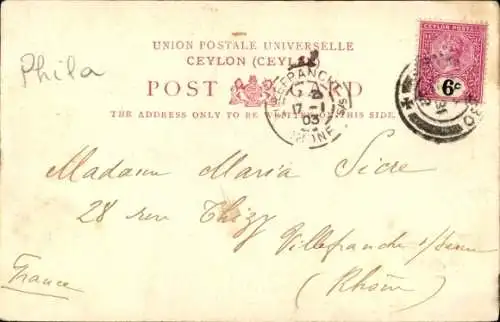 UNION POSTALE UNIVERSELLE
CEYLON (CEYLAN)
POST CARD
THE ADDRESS ONLY TO BE WRITTEN ON THIS SIDE.
Phila
CEYLON POSTAGE
6c
17-1
03
RHONE
Madame Maria Sicre
28 rue Thizy
Villefranche s/
(Rhône)
France